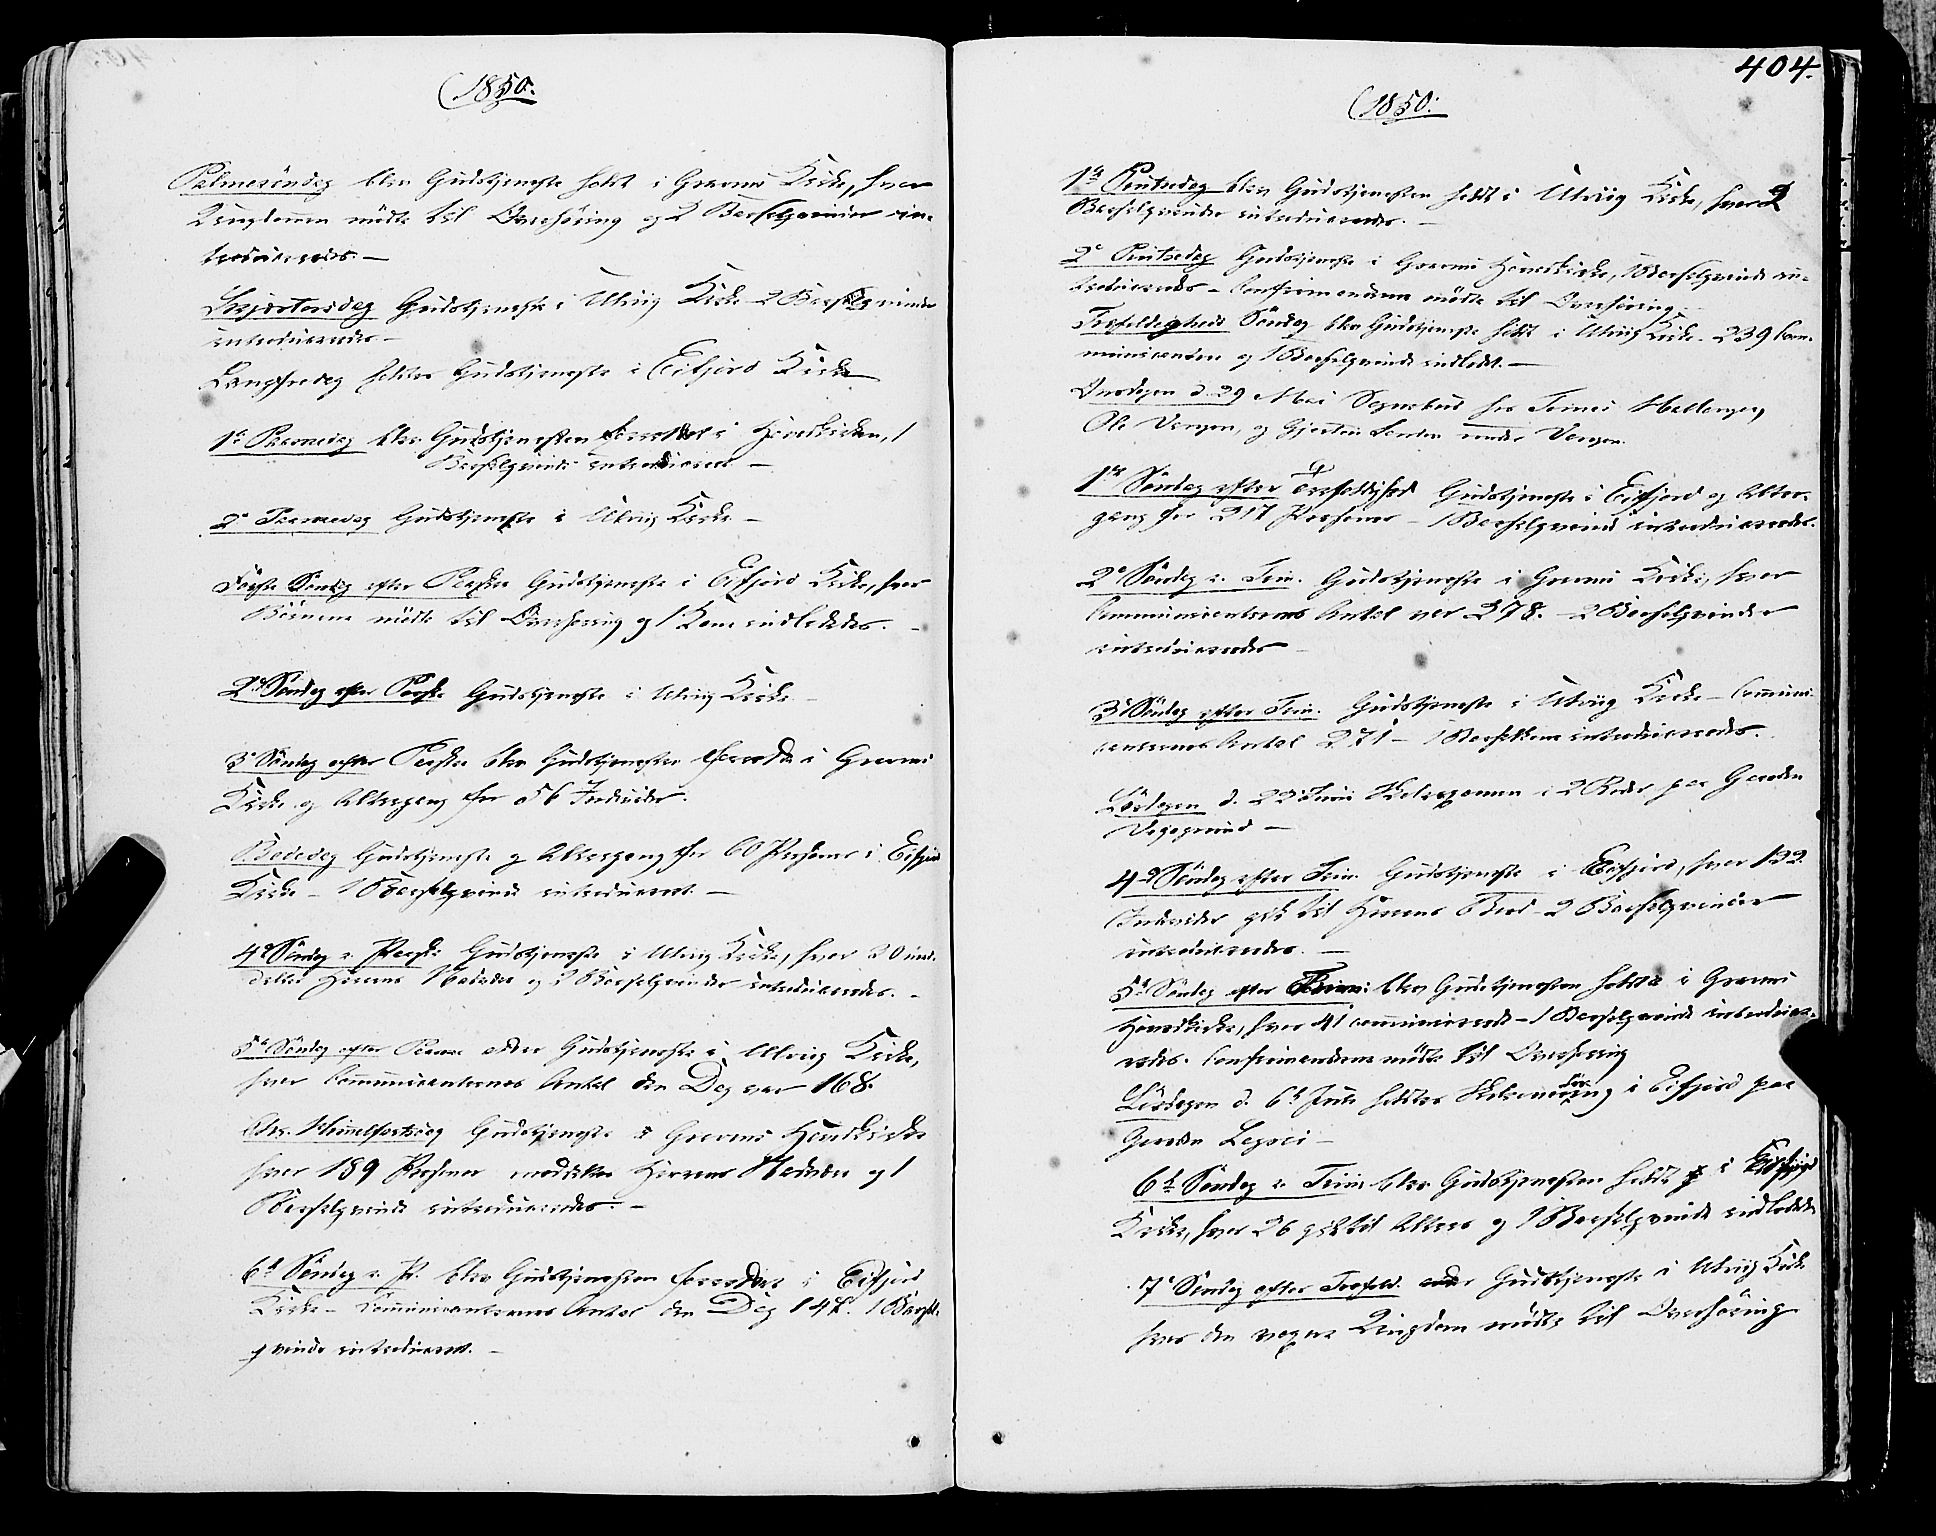 (1850.
Palmesöndag blev Gudstjeneste holdt i Graven Kirke, hvor
Ungdommen mödte til Overhöring og 2 Barselqvinder in-
troduceredes. —
Skjærtorsdag Gudstjeneste i Ulvig Kirke 2 Barselqvinder
introduceredes —
Langfredag holdtes Gudstjeneste i Eifjord Kirke
1e Paaskedag blev Gudstjenesten forrettet i Hovedkirken, 1
Barselqvinde introduceret —
2e Paaskedag Gudstjeneste i Ulvig Kirke —
Förste Söndag efter Paaske Gudstjeneste i Eifjord Kirke, hvor
Börnene mödte til Overhöring og 1 Kone indlededes. —
2d Söndag efter Paaske Gudstjeneste i Ulvig Kirke —
3e Söndag efter Paaske blev Gudstjenesten forrettet i Graven
Kirke og Altergang for 56 Individer.
Bededag Gudstjeneste og Altergang for 60 Personer i Eifjord
Kirke — 1 Barselqvinde introduceret. —
4d Söndag e. Paaske Gudstjeneste i Ulvig Kirke, hvor 20 med-
deltes Herrens Nadvere og 2 Barselqvinder introduceredes. —
5te Söndag efter Paaske Gudstjeneste i Ulvig Kirke,
hvor Communicanternes Antal den Dag var 168.
Chr. Himmelfartsdag Gudstjeneste i Graven Hovedkirke
hvor 189 Personer meddeltes Herrens Nadvere og 1
Barselqvinde introduceredes. —
6te Söndag e. P. blev Gudstjenesten forrettet i Eifjord
Kirke — Communicanternes Antal den Dag 147. 1 Barsel-
qvinde introduceret. —
404.
(1850.
1ste Pintsedag blev Gudstjenesten holdt i Ulvig Kirke, hvor 2
Barselqvinder introduceredes. —
2e Pintsedag Gudstjeneste i Graven Hovedkirke, 1 Barselqvinde in-
troduceredes — Confirmanderne mödte til Overhöring.
Trefoldigheds Söndag blev Gudstjeneste holdt i Ulvig Kirke. 239 Com-
municanter og 1 Barselqvinde indledet. —
Onsdagen d. 29 Mai Sognebud hos
Ole og under
1ste Söndag efter Trefoldighed Gudstjeneste i Eifjord og Alter-
gang for 217 Personer — 1 Barselqvinde introduceredes.
2e Söndag e. Trin. Gudstjeneste i Graven Kirke, hvor
Communicanternes Antal var 278. — 2 Barselqvinder
introduceredes —
3e Söndag efter Trin. Gudstjeneste i Ulvig Kirke — Communi-
canternes Antal 271 — 1 Barselkone introduceredes.
Löverdagen d. 22 Juni i 2 Roder paa Gaarden
—
4d Söndag efter Trin. Gudstjeneste i Eifjord, hvor 132
Individer gik til Herrens Bord — 2 Barselqvinder
introduceredes. —
5te Söndag efter Trin: blev Gudstjenesten holdt i Graven
Hovedkirke, hvor 41 communicerede — 1 Barselqvinde introduce-
redes. Confirmanderne mödte til Overhöring
Löverdagen d. 6te Juli holdtes i Eifjord paa
Gaarden Legrei —
6te Söndag e. Trin. blev Gudstjenesten holdt i Eifjord
Kirke, hvor 26 gik til Alters og 1 Barselqvinde indlededes
7e Söndag efter Trefold. Gudstjeneste i Ulvig Kirke
hvor den Ungdom mödte til Overhöring